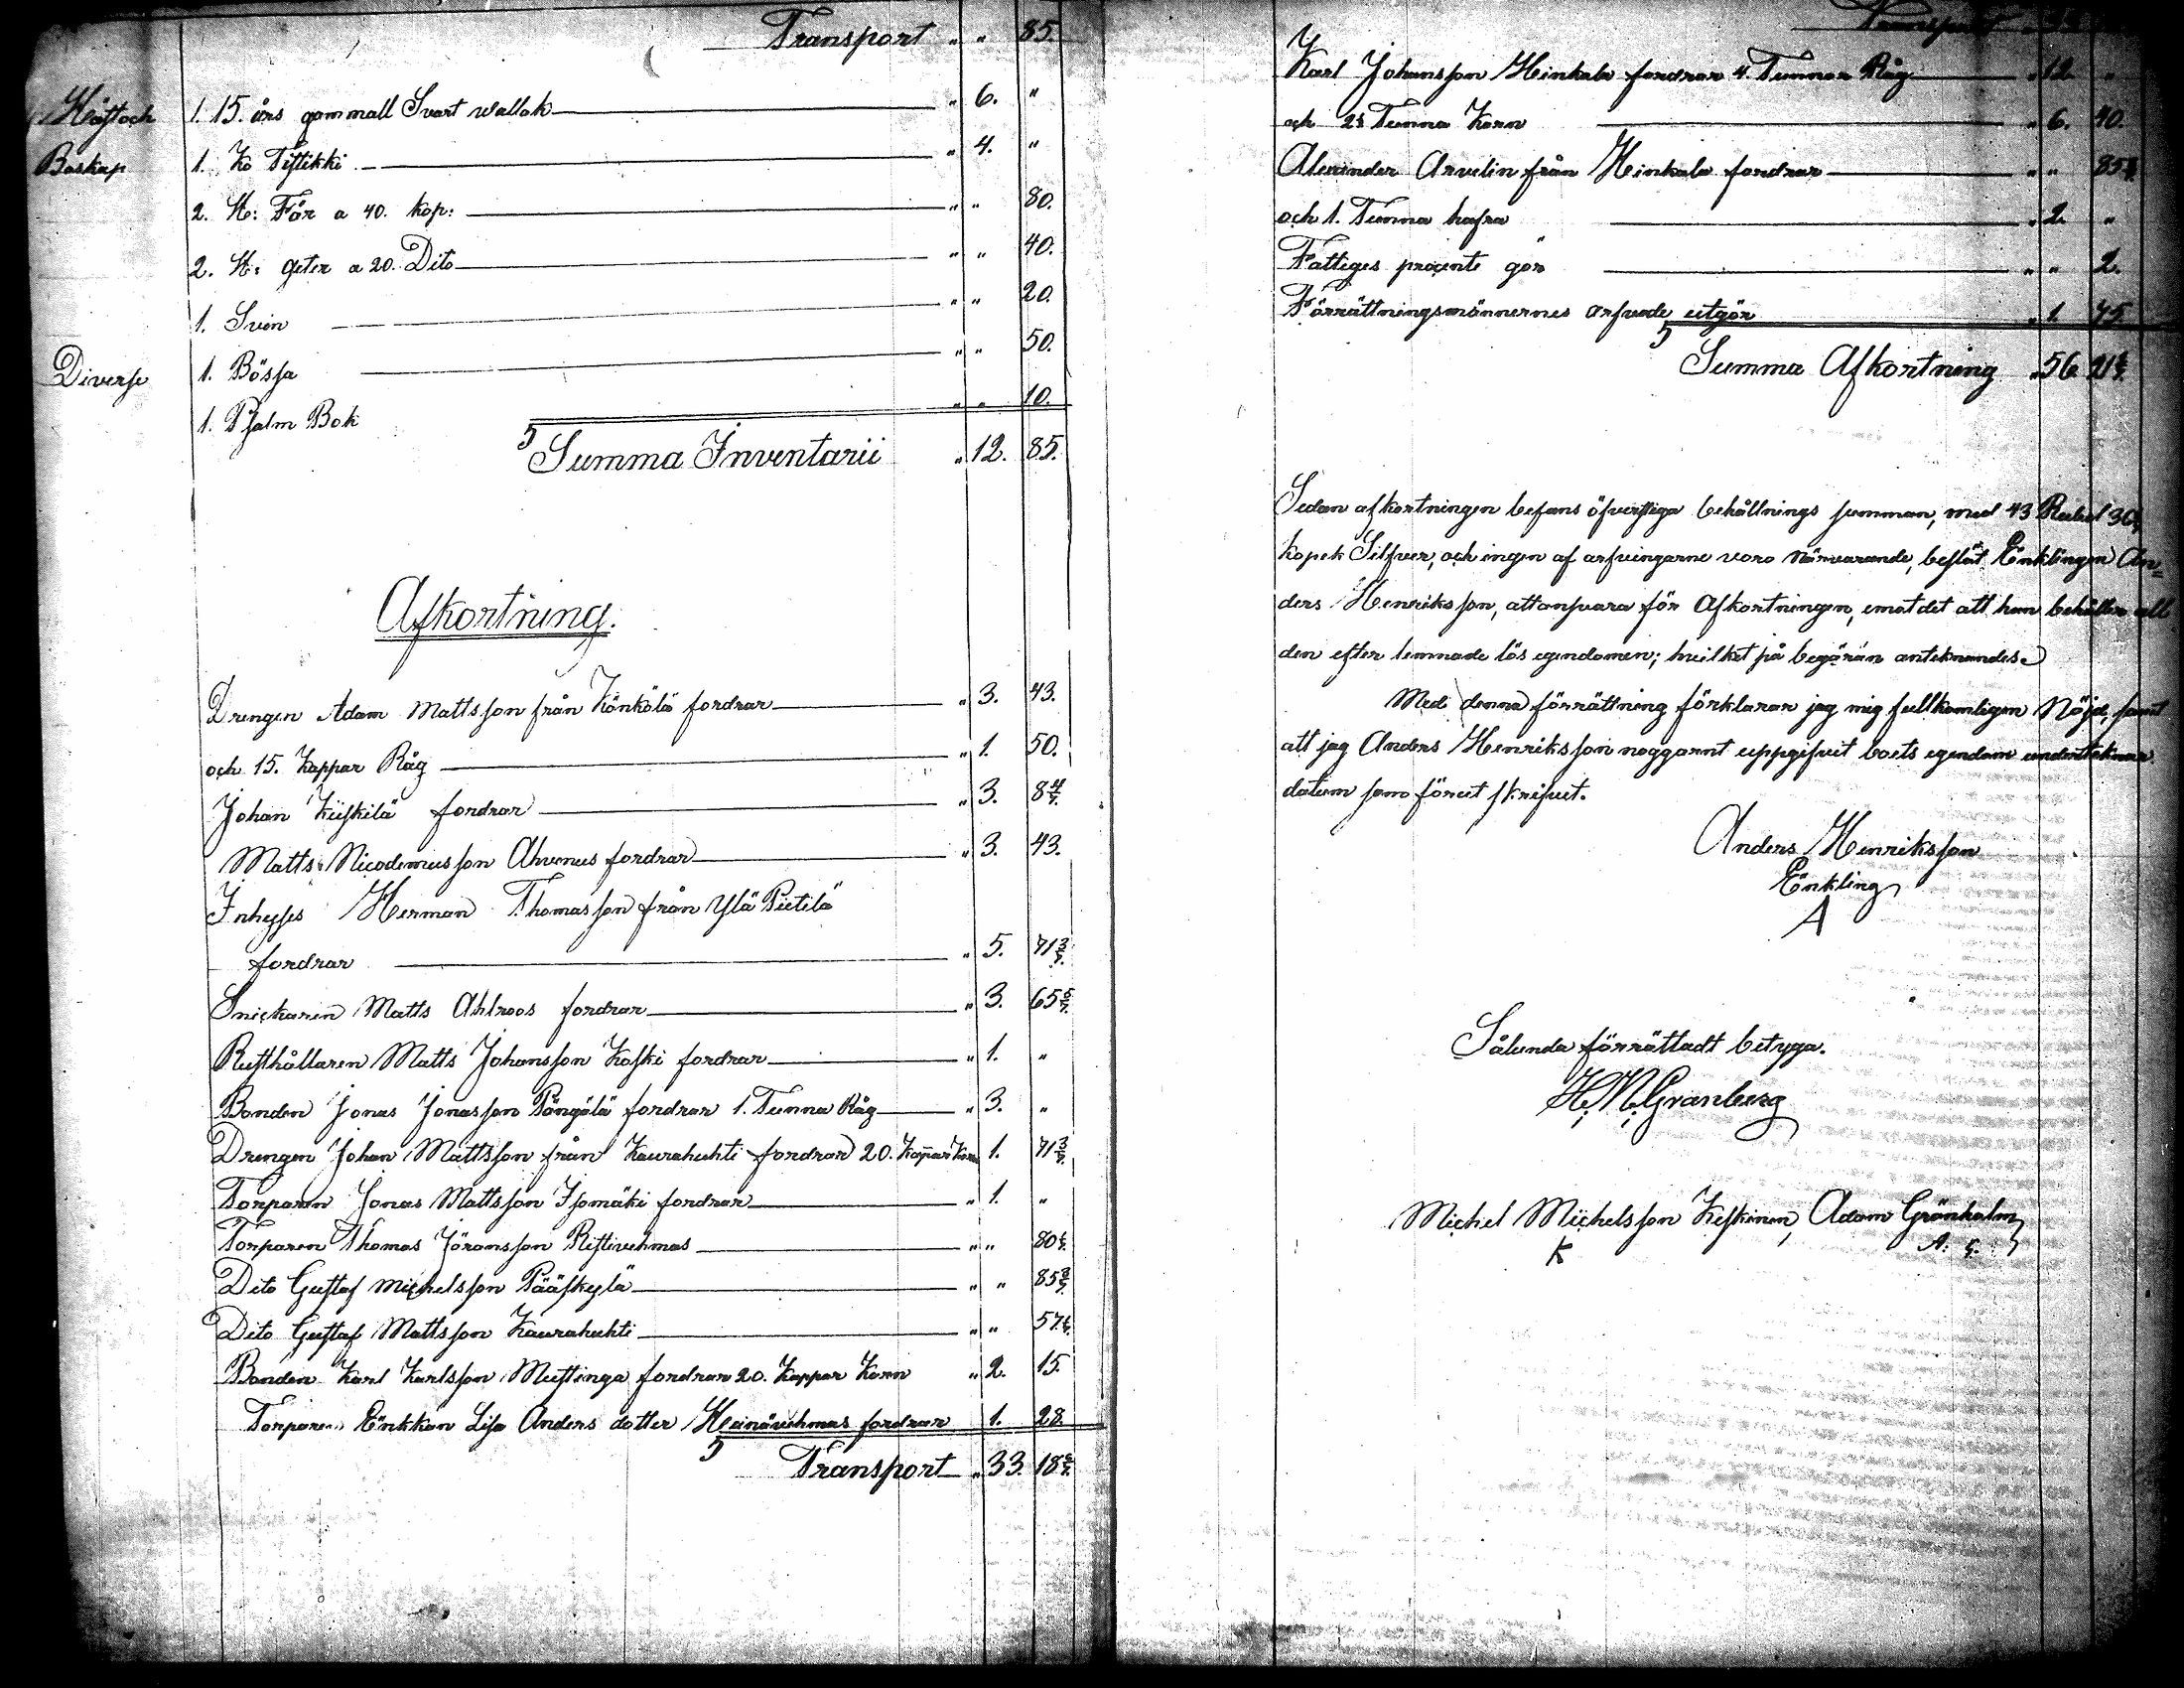 Transport " " 85.
Häst och 1. 15. års gammall Svart wallak " 6. "
Boskap 1. Ko Tistikki " 4. "
2. St: Får a 40. kop: " " 80.
2. St: geter a 20. Dito " " 40.
1. Svin " " 20.
Diverse 1. Bössa " " 50.
1. Psalm Bok " " 10.
Summa Inventarii " 12. 85.
Afkortning.
Drengen Adam Mattsson från Könkölä fordrar " 3. 43.
och 15. Kappar Råg " 1. 50.
Johan Kiiskilä fordrar " 3. 8 4/7.
Matts Nicodemusson Ahvenus fordrar " 3. 43.
Inhyses Herman Thomasson från Ylä Pietilä
fordrar " 5. 71 3/7.
Snickaren Matts Ahlroos fordrar " 3. 65 5/7.
Rusthållaren Matts Johansson Koski fordrar " 1. "
Bonden Jonas Jonasson Pöngölä fordrar 1. Tunna Råg " 3. "
Drengen Johan Mattsson från Kaurahuhti fordrar 20. Kappar Korn 1. 71 3/7.
Torparen Jonas Mattsson Isomäki fordrar " 1. "
Torparen Thomas Jöransson Ristivehmas " " 80
Dito Gustaf Michelsson Pääskylä " " 85 5/7.
Dito Gustaf Mattsson Kaurahuhti " " 57
Bonden Karl Karlsson Mustinga fordrar 20. Kappar Korn " 2. 15.
Torpare Enkkan Lisa Anders dotter Heinävehmas fordrar 1. 28
Transport " 33. 18
Transport
Karl Johansson Heinkala fordrar 4. Tunnor Råg " 12 "
och Tunna Korn " 6. 40.
Alexander Arvelin från Heinkala fordrar " " 85
och 1. Tunna hafra " 2. "
Fattiges procente gör " " 2.
Förrättningsmännernes arfvode utgör " 1. 75.
Summa Afkortning " 56 21
Sedan afkortningen befans öfverstiga behållnings summan, med 43 Rubel 36
kopek Silfver, och ingen af arfvingarne voro närvarande, beslöt Enklingen An=
ders Henriksson, att ansvara för Afkortningen, emot det att han behåller all
den efter lemnade lös egendomen; hvilket på begäran anteknandes.
Med denna förrättning förklarar jag mig fullkomligen Nöjd, samt
att jag Anders Henriksson noggarnt uppgifvit boets egendom underteknar
datum som förut skrifvit.
Anders Henriksson
Enkling
A
Sålunda förrättadt betyga.
H. N. Granberg
Michel Michelsson Keskinen, Adam Grönholm
K A. G.